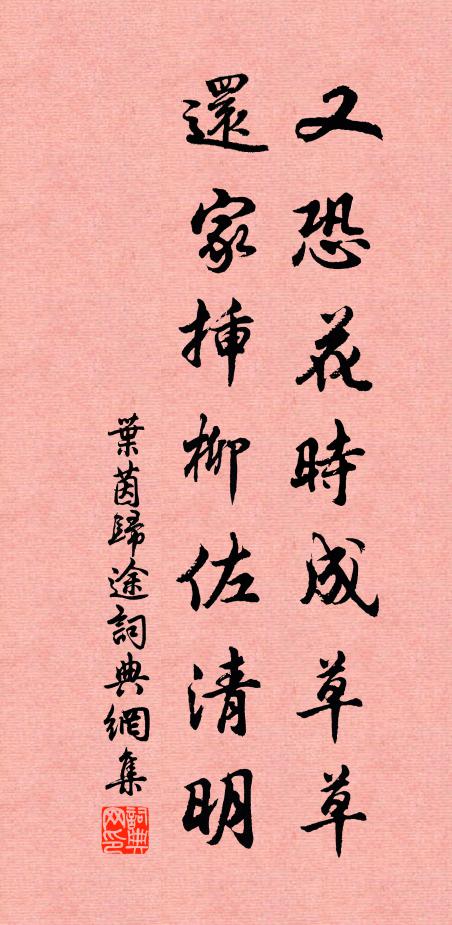 又恐花時成草草
還家揷柳佐清明
葉茵歸途詞典網集
詞典网印